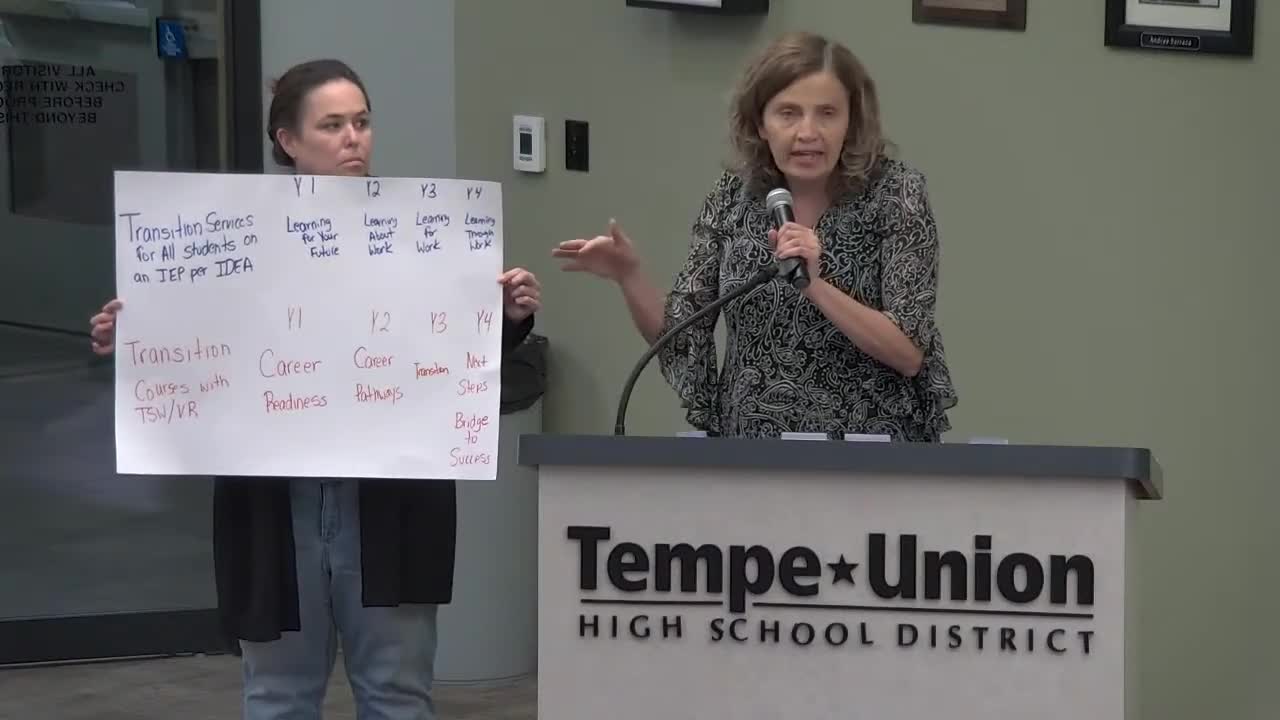 ALL VISITOR
CHECK WITH REC
BEFORE PROC
BEYOND THIS
Y1 Y2 Y3 Y4
Transition Services
for All students on
an IEP per IDEA
Learning
for Your
Future
Learning
About
Work
Learning
for
Work
Learning
Through
Work
Y1 Y2 Y3 Y4
Transition
Courses with
TSW/VR
Career
Readiness
Career
Pathways
Transition
Next
Steps
Bridge
to
Success
Tempe Union
HIGH SCHOOL DISTRICT